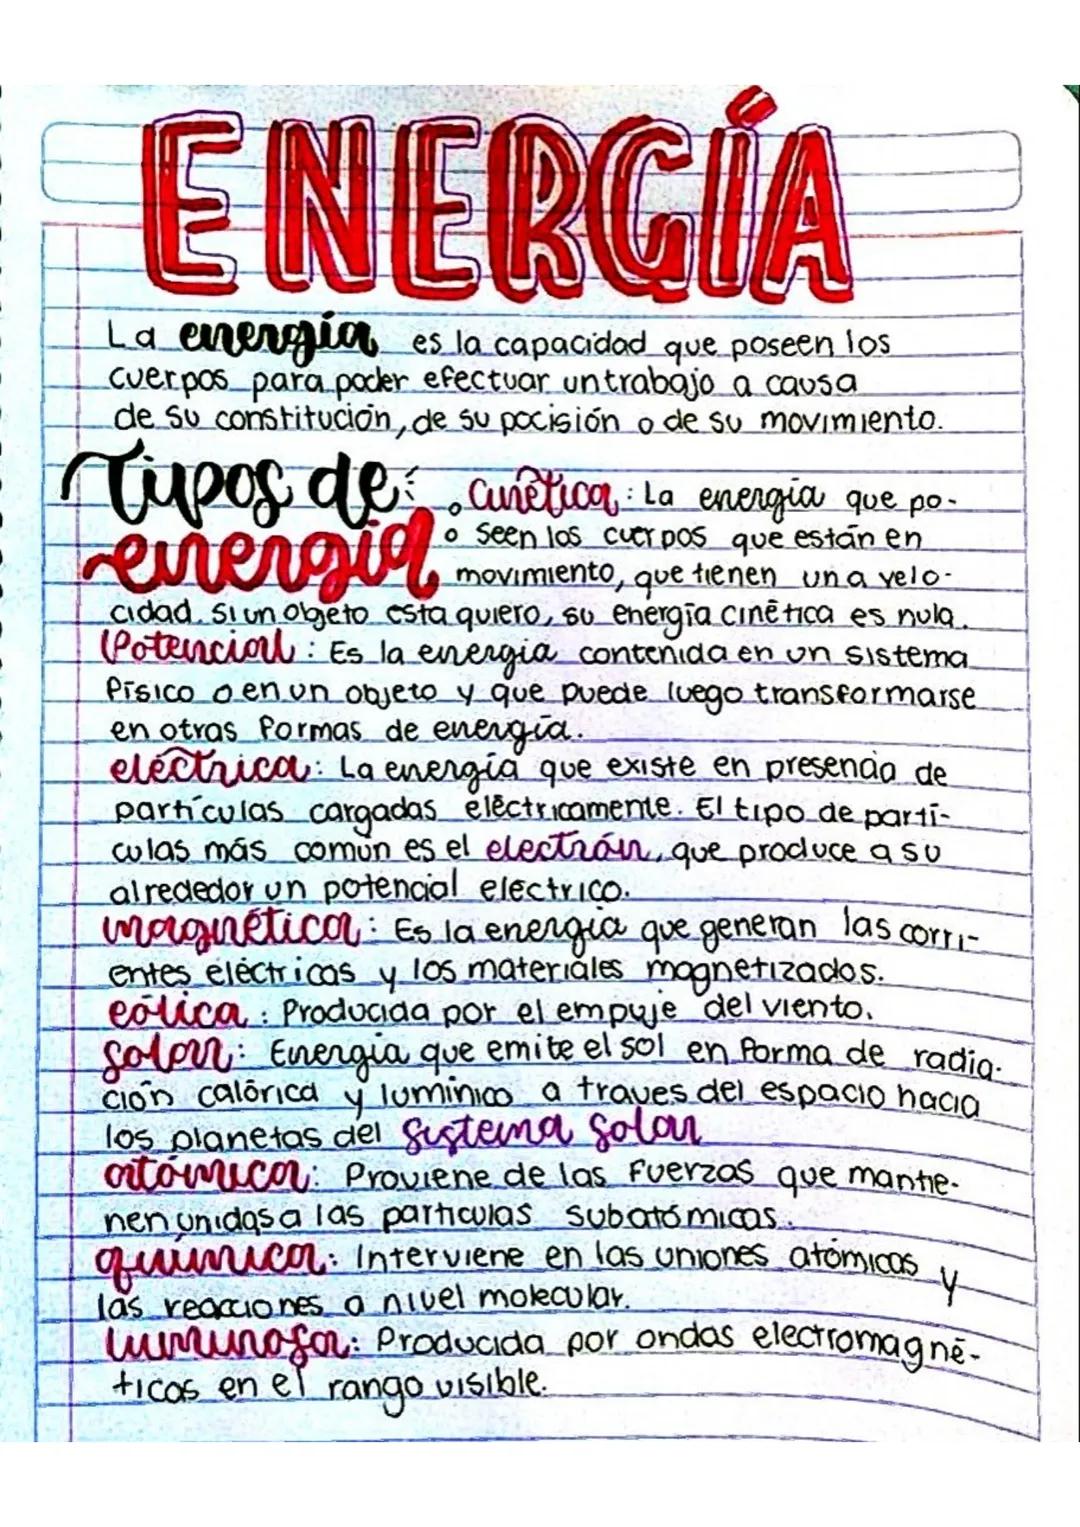 ENERGÍA
La energía es la capacidad que poseen los
cuerpos para poder efectuar un trabajo a causa
de su constitución, de su pocisión o de su movimiento.
Tipos de energía
Cinética: La energía que po-
seen los cuerpos que están en
movimiento, que tienen una velo-
cidad. Si un objeto esta quiero, su energía cinética es nula.
Potencial: Es la energía contenida en un sistema
físico o en un objeto y que puede luego transformarse
en otras formas de energía.
eléctrica: La energía que existe en presencia de
partículas cargadas eléctricamente. El tipo de partí-
culas más común es el electrón, que produce a su
alrededor un potencial eléctrico.
magnética: Es la energía que generan las corri-
entes eléctricas y los materiales magnetizados.
eólica: Producida por el empuje del viento.
Solar: Energía que emite el sol en forma de radia-
ción calórica y lumínico a traves del espacio hacia
los planetas del Sistema Solar
atómica: Proviene de las fuerzas que mantie-
nen unidas a las partículas subatómicas.
química: Interviene en las uniones atómicas y
las reacciones a nivel molecular.
luminosa: Producida por ondas electromagné-
ticas en el rango visible.